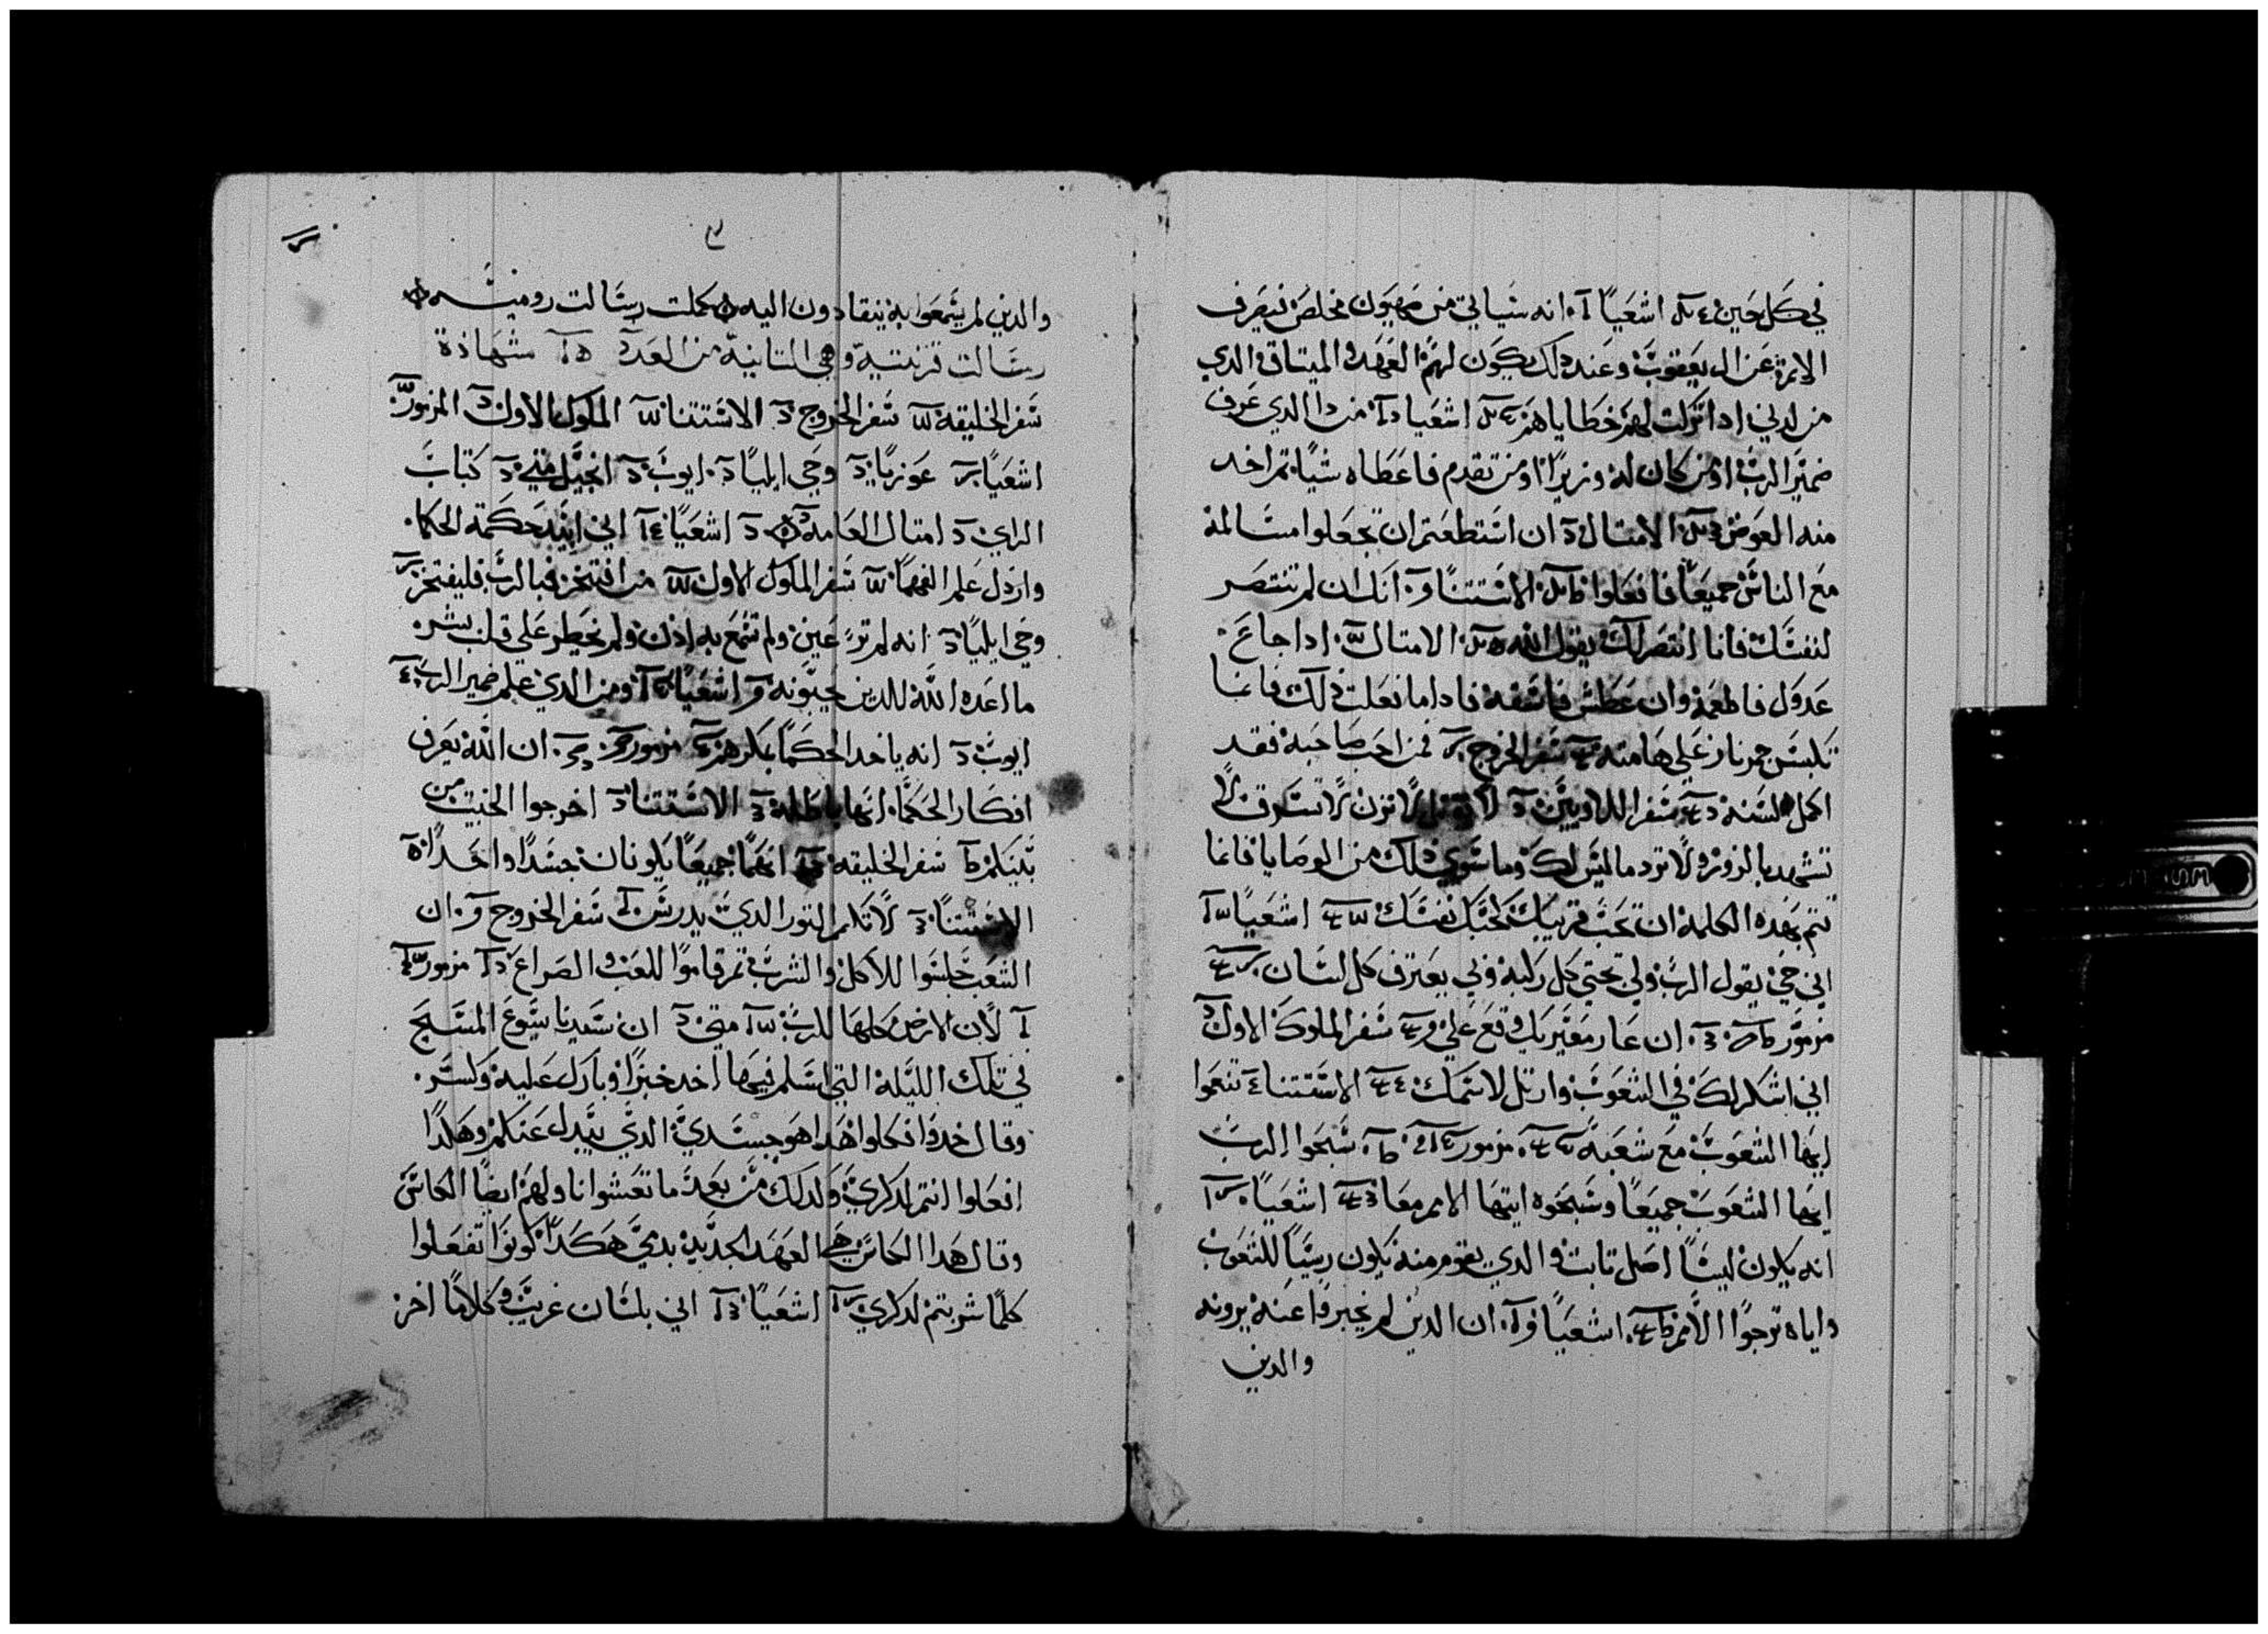 في كل حين اشعيا انه سياتي من صهيون مخلص فيصرف
الاثم عن ال يعقوب وعند دلك يكون لهم العهد والميتاق الدي
من لدني ادا تركت لهم خطاياهم اشعيا من دا الدي عرف
ضمير الرب او من كان له وزيرًا او من تقدم فاعطاه شيًا تم اخد
منه العوض الامتال ان استطعتم ان تجعلوا مسالمة
مع الناس جميعًا فافعلوا الاستتنا انك ان لم تنتصر
لنفسك فانا انتصر لك يقول الله الامتال ادا جاع
عدوك فاطعمه وان عطش فاسقه فادا ما فعلت دلك فانما
تكبس جمر نار علي هامته سفر الخروج فمن احب صاحبه فقد
اكمل السنه سفر اللاويين لا تقتل لا تزن لا تسرق لا
تشهد بالزور ولا تود ما ليس لك وما سوي دلك من الوصايا فانما
تتم بهده الكلمة ان تحب قريبك كحبك نفسك اشعيا
اني حي يقول الرب ولي تحتي كل ركبة ولي يعترف كل لسان
مزمور ان عار معيريك وقع علي سفر الملوك الاول
اني اشكر لك في الشعوب وارتل لاسمك الاستتنا تنعموا
ايها الشعوب مع شعبه مزمور سبحوا الرب
ايها الشعوب جميعًا وسبحوه ايتها الامم معا اشعيا
انه يكون ليسا اصل تابت والدي يقوم منه يكون ريسًا للشعوب
واياه ترجوا الامم اشعيا ان الدين لم يخبروا عنه يرونه
والدين
والدين لم يسمعوا به ينقادون اليه كملت رسالت روميه
رسالت قرنتية وهي التانية من العدد شهادة
سفر الخليقه سفر الخروج الاستتنا الملوك الاول المزمور
اشعيا عوزيا وحي ايليا ايوب انجيل متي كتاب
الراي امتال العامه اشعيا اني ابيد حكمة الحكما
وارذل علم الفهما سفر الملوك الاول من افتخر فبالرب فليفتخر
وحي ايليا انه لم تر عين ولم تسمع به اذن ولم يخطر على قلب بشر
ما اعده الله للدين يحبونه اشعيا ومن الدي علم ضمير الرب
ايوب انه ياخد الحكما بمكرهم مزمور ان الله يعرف
افكار الحكما انها باطلة الاستتنا اخرجوا الخبيت من
بينكم سفر الخليقه انهما جميعًا يكونان جسدًا واحدًا
الاستتنا لا تكلم التور الدي يدرس سفر الخروج ان
الشعب جلسوا للاكل والشرب تم قاموا للعب والصراع مزمور
لان الارض كلها للرب متي ان سيدنا يسوع المسيح
في تلك الليلة التي اسلم فيها اخد خبزًا وبارك عليه وكسر
وقال خدوا فكلوا هدا هو جسدي الدي يبدل عنكم وهكدا
افعلوا انتم لدكري وكدلك من بعد ما تعشوا ناولهم ايضًا الكاس
وقال هدا الكاس هي العهد الجديد بدمي هكدا كونوا تفعلوا
كلما شربتم لدكري اشعيا اني بلسان غريب وكلامًا اخر